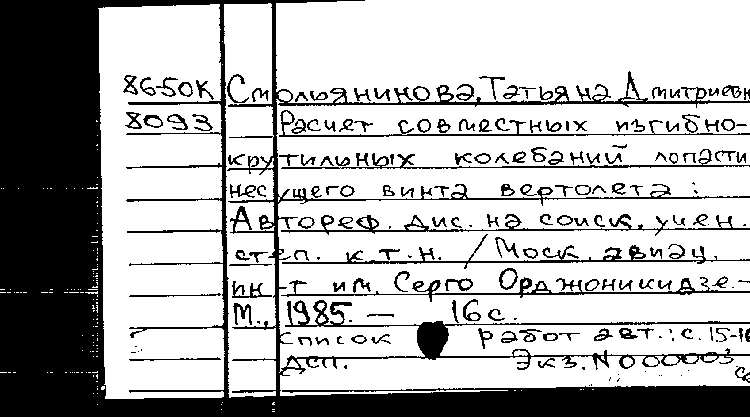 86-50К Смольянинова, Татьяна Дмитриевн
8093 Расчет совместных изгибно-
крутильных колебаний лопасти
несущего винта вертолета :
Автореф. дис. на соиск. учен.
степ. к.т.н. / Моск. авиац.
ин-т им. Серго Орджоникидзе.-
М., 1985. — 16 с.
Список работ авт.: с. 15-16
ДСП. Экз. N 000003